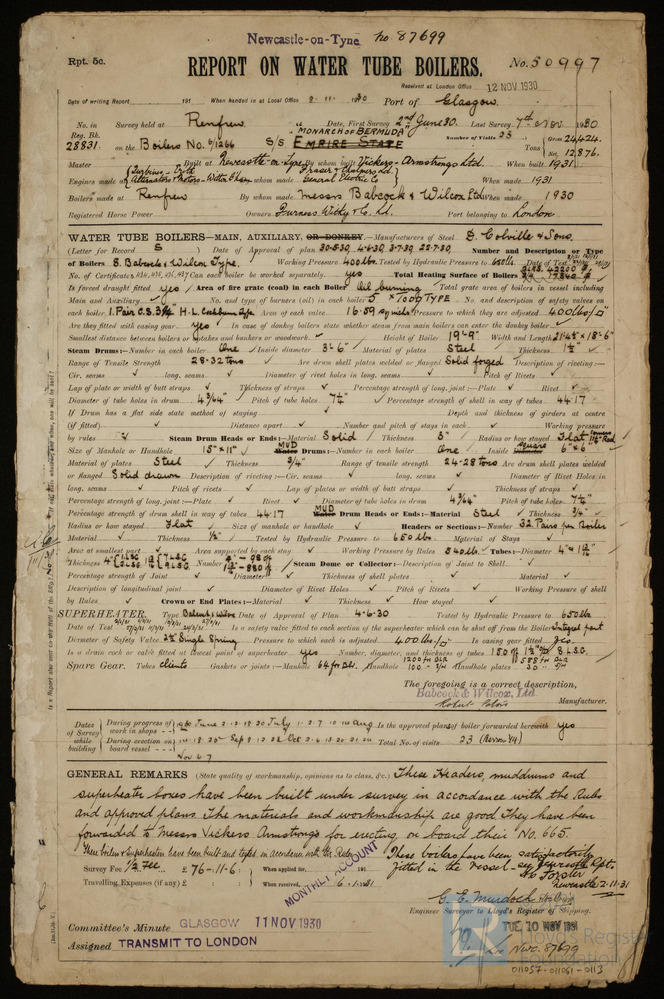 Newcastle-on-Tyne No 87699
Rpt. 5c.
REPORT ON WATER TUBE BOILERS. No. 50997
Received at London Office 12 NOV 1930
Date of writing Report 191 When handed in at Local Office 8.11.1930 Port of Glasgow
No. in Survey held at Renfrew Date, First Survey 2nd June 30. Last Survey 7th Nov 1930
Reg. Bk. "MONARCH OF BERMUDA" Number of Visits 23
28831. on the Boilers No. 6/1266 S/S EMPIRE STATE Tons Gross 22,424. Net 12,876.
Master Built at Newcastle-on-Tyne By whom built Vickers-Armstrongs Ltd. When built 1931
Engines made at By whom made Fraser & Chalmers Ld. General Electric Co When made 1931
Boilers made at Renfrew By whom made Messrs Babcock & Wilcox Ltd When made 1930
Registered Horse Power Owners Furness Withy & Co. Ld. Port belonging to London
WATER TUBE BOILERS—MAIN, AUXILIARY, OR DONKEY.—Manufacturers of Steel D. Colville & Sons.
(Letter for Record S) Date of Approval of plan 30-5-30, 4-6-30, 3-7-30, 22-7-30. Number and Description or Type
of Boilers 8. Babcock & Wilcox Type. Working Pressure 400 lbs. Tested by Hydraulic Pressure to 650 lbs. Date of Test
No. of Certificate Can each boiler be worked separately. yes Total Heating Surface of Boilers
Is forced draught fitted yes Area of fire grate (coal) in each Boiler Oil burning Total grate area of boilers in vessel including
Main and Auxiliary ✓ No. and type of burners (oil) in each boiler 5 No. and description of safety valves on
each boiler 1. Pair Area of each valve 16.59 Pressure to which they are adjusted 400 lbs/□"
Are they fitted with easing gear. yes In case of donkey boilers state whether steam from main boilers can enter the donkey boiler ✓
Smallest distance between boilers or uptakes and bunkers or woodwork ✓ Height of Boiler 19'-9" Width and Length
Steam Drums:—Number in each boiler One Inside diameter 3'-6" Material of plates Steel Thickness
Range of Tensile Strength 28-32 tons Are drum shell plates welded or flanged Solid forged Description of riveting:—
Cir. seams ✓ long. seams ✓ Diameter of rivet holes in long. seams ✓ Pitch of Rivets ✓
Lap of plate or width of butt straps ✓ Thickness of straps ✓ Percentage strength of long. joint:—Plate ✓ Rivet ✓
Diameter of tube holes in drum 4 3/64" Pitch of tube holes 7¼" Percentage strength of shell in way of tubes 44.17
If Drum has a flat side state method of staying ✓ Depth and thickness of girders at centre
(if fitted) ✓ Distance apart ✓ Number and pitch of stays in each ✓ Working pressure
by rules ✓ Steam Drum Heads or Ends:—Material Solid Thickness 3" Radius or how stayed Flat
Size of Manhole or Handhole 15" × 11" MUD Water Drums:—Number in each boiler One Inside square 6" × 6"
Material of plates Steel Thickness ¾" Range of tensile strength 24-28 tons Are drum shell plates welded
or flanged Solid drawn Description of riveting:—Cir. seams ✓ long. seams ✓ Diameter of Rivet Holes in
long. seams ✓ Pitch of rivets ✓ Lap of plates or width of butt straps ✓ Thickness of straps ✓
Percentage strength of long. joint:—Plate ✓ Rivet ✓ Diameter of tube holes in drum 4 3/64" Pitch of tube holes 7¼"
Percentage strength of drum shell in way of tubes 44.17 MUD Water Drum Heads or Ends:—Material Steel Thickness ¾"
Radius or how stayed Flat Size of manhole or handhole ✓ Headers or Sections:—Number 32 Pairs per Boiler
Material ✓ Thickness ½" Tested by Hydraulic Pressure to 650 lbs Material of Stays ✓
Area at smallest part ✓ Area supported by each stay ✓ Working Pressure by Rules 540 lbs Tubes:—Diameter
Thickness Number Steam Dome or Collector:—Description of Joint to Shell
Percentage strength of Joint ✓ Diameter Thickness of shell plates ✓ Material ✓
Description of longitudinal joint ✓ Diameter of Rivet Holes ✓ Pitch of Rivets ✓ Working Pressure of shell
by Rules ✓ Crown or End Plates:—Material ✓ Thickness ✓ How stayed ✓
SUPERHEATER. Type Babcock & Wilcox Date of Approval of Plan 4-6-30 Tested by Hydraulic Pressure to 650 lbs
Date of Test Is a safety valve fitted to each section of the superheater which can be shut off from the Boiler Integral part
Diameter of Safety Valve 2½" Single Spring Pressure to which each is adjusted 400 lbs/□" Is easing gear fitted yes.
Is a drain cock or valve fitted at lowest point of superheater yes Number, diameter, and thickness of tubes
Spare Gear. Tubes clients Gaskets or joints:—Manhole 64 for Blr. Handhole Handhole plates
The foregoing is a correct description,
Babcock & Wilcox, Ltd.
Manufacturer.
Dates of Survey while building
During progress of work in shops Is the approved plan of boiler forwarded herewith yes
During erection on board vessel Total No. of visits 23
Nov 6.7
GENERAL REMARKS (State quality of workmanship, opinions as to class, &c.) These Headers, muddrums and
superheater boxes have been built under survey in accordance with the Rules
and approved plans. The materials and workmanship are good. They have been
forwarded to Messrs Vickers Armstrongs for erecting on board their No. 665.
These boilers & Superheaters have been built and tested in accordance with the Rules
These boilers have been satisfactorily
fitted in the vessel - see Newcastle Rpt.
Survey Fee £ 76-11-6 When applied for, 191
Travelling Expenses (if any) £ When received, 6.1.1931
MONTHLY ACCOUNT
Newcastle 2.11.31
G. E. Murdoch
Engineer Surveyor to Lloyd's Register of Shipping.
Committee's Minute GLASGOW 11 NOV 1930
TUE. 10 NOV 1931
Assigned TRANSMIT TO LONDON
See Nwc. 87699
Lloyd's Register
Foundation
011057-011061-0113